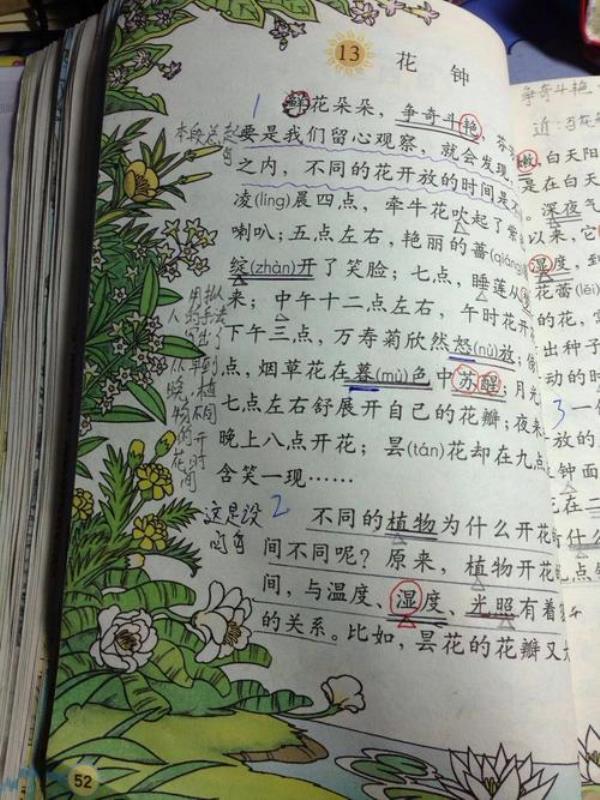 13 花钟
1 鲜花朵朵，争奇斗艳，芬
要是我们留心观察，就会发现，
之内，不同的花开放的时间是不
凌(líng)晨四点，牵牛花吹起了紫
喇叭；五点左右，艳丽的蔷(qiáng)
绽(zhàn)开了笑脸；七点，睡莲从
来；中午十二点左右，午时花开
下午三点，万寿菊欣然怒(nù)放；傍
点，烟草花在暮(mù)色中苏醒；月光
七点左右舒展开自己的花瓣；夜来
晚上八点开花；昙(tán)花却在九点
含笑一现……
2 不同的植物为什么开花
间不同呢？原来，植物开花
间，与温度、湿度、光照有着
的关系。比如，昙花的花瓣又
本段总起
句
用拟
人的手法
写出了
从早到
晚，植
物不同
的开
花时
间
这是设
问句
52
争奇斗艳
近：
白天阳
是在白天
。深夜气
以来，它
湿度，到
花蕾(lěi)
的花，
出种子
动的时
3 一
放的
钟面
在二
什么
点